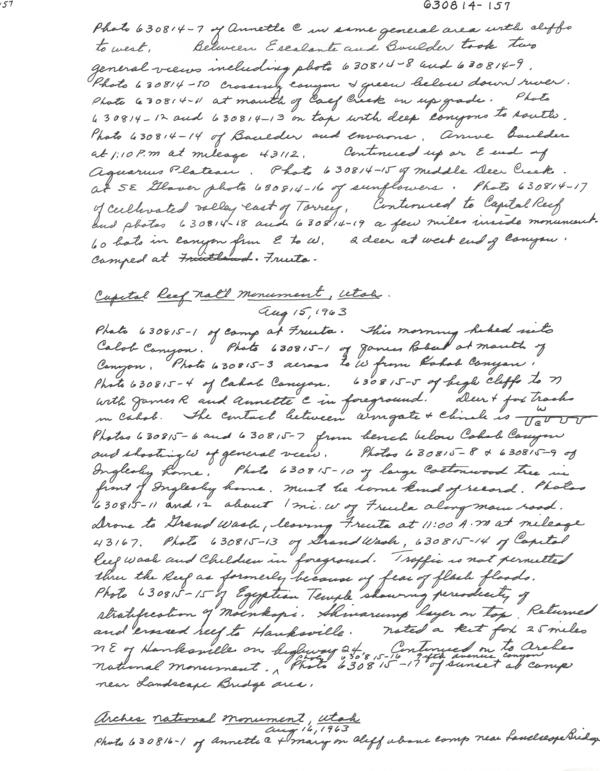 157
630814-157
Photo 630814-7 of Annette C in same general area with cliffs
to west. Between Escalante and Boulder took two
general views including photo 630814-8 and 630814-9.
Photo 630814-10 crossing canyon & green below down river.
Photo 630814-11 at mouth of Calf Creek on upgrade. Photo
630814-12 and 630814-13 on top with deep canyons to south.
Photo 630814-14 of Boulder and environs. Arrive Boulder
at 1:10 P.m at mileage 43112. Continued up on E end of
Aquarius Plateau. Photo 630814-15 of middle Deer Creek.
at SE Glover photo 630814-16 of sunflowers. Photo 630814-17
of cultivated valley east of Torrey. Continued to Capital Reef
and photos 630814-18 and 630814-19 a few miles inside monument.
60 bats in canyon from E to W. 2 deer at west end of Canyon.
Camped at Fruitland. Fruita.
Capital Reef Nat'l Monument, Utah.
Aug 15, 1963
Photo 630815-1 of camp at Fruita. This morning hiked into
Cahob Canyon. Photo 630815-1 of James Robert at mouth of
Canyon. Photo 630815-3 across to W from Cahob Canyon.
Photo 630815-4 of Cahob Canyon. 630815-5 of high cliffs to N
with James R and Annette C in foreground. Deer & fox tracks
in Cahob. The contact between wingate & chinle is W
Photos 630815-6 and 630815-7 from bench below Cohob Canyon
and shooting W of general view. Photos 630815-8 & 630815-9 of
Inglesby home. Photo 630815-10 of large Cottonwood tree in
front of Inglesby home. must be some kind of record. Photos
630815-11 and 12 about 1 mi. W of Fruita along main road.
Drove to Grand Wash, leaving Fruita at 11:00 A.m at mileage
43167. Photo 630815-13 of Grand Wash, 630815-14 of Capital
Reef Wash and Children in foreground. Traffic is not permitted
thru the Reef as formerly because of fear of flash floods.
Photo 630815-15 of Egyptian Temple showing periodicity of
stratification of Moenkopi. Shinarump layer on top. Returned
and crossed reef to Hanksville. Noted a kit fox 25 miles
NE of Hanksville on highway 24. Continued on to Arches
Photo 630815-16 Fifth avenue canyon
national monument. ^ Photo 630815-17 of sunset at camp
near Landscape Bridge area.
Arches National Monument, Utah
Aug 16, 1963
Photo 630816-1 of Annette C & Mary on cliff above camp near Landscape Bridge